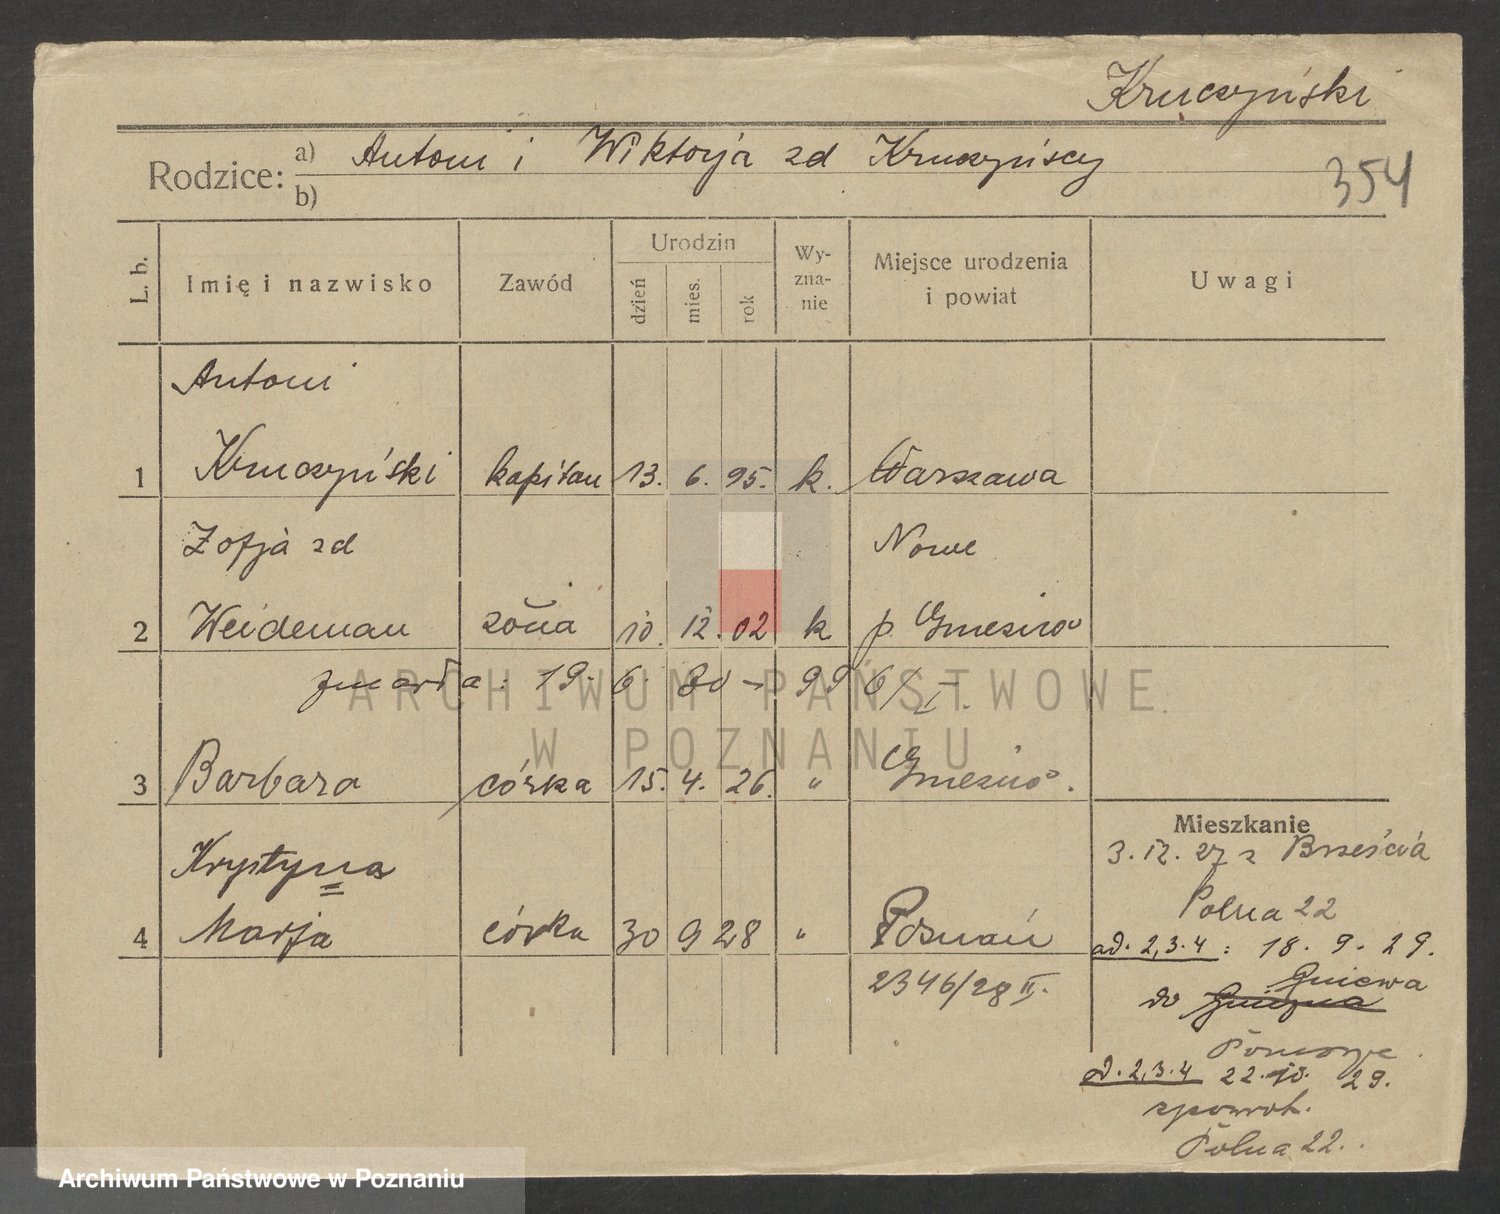 Kruczyński
Rodzice: a) Antoni i Wiktorja zd Kruczyńscy
b)
354
L. b. Imię i nazwisko Zawód Urodzin dzień mies. rok Wyznanie Miejsce urodzenia i powiat Uwagi
Antoni
1 Kruczyński kapitan 13. 6. 95. k. Warszawa
Zofja zd Nowe
2 Weideman żona 10. 12. 02 k p. Gniezno
zmarła: 19. 6. 30 – 996/I.
3 Barbara córka 15. 4. 26. " Gniezno.
Krystyna
4 Marja córka 30 9 28 " Poznań
2346/28 II.
Mieszkanie
3. 12. 27 z Brześcia
Polna 22
ad. 2,3.4: 18. 9. 29.
Gniewa
do Gniezna
Pomorze
ad. 2,3.4 22. 10. 29.
zpowrot.
Polna 22.
ARCHIWUM PAŃSTWOWE
W POZNANIU
Archiwum Państwowe w Poznaniu